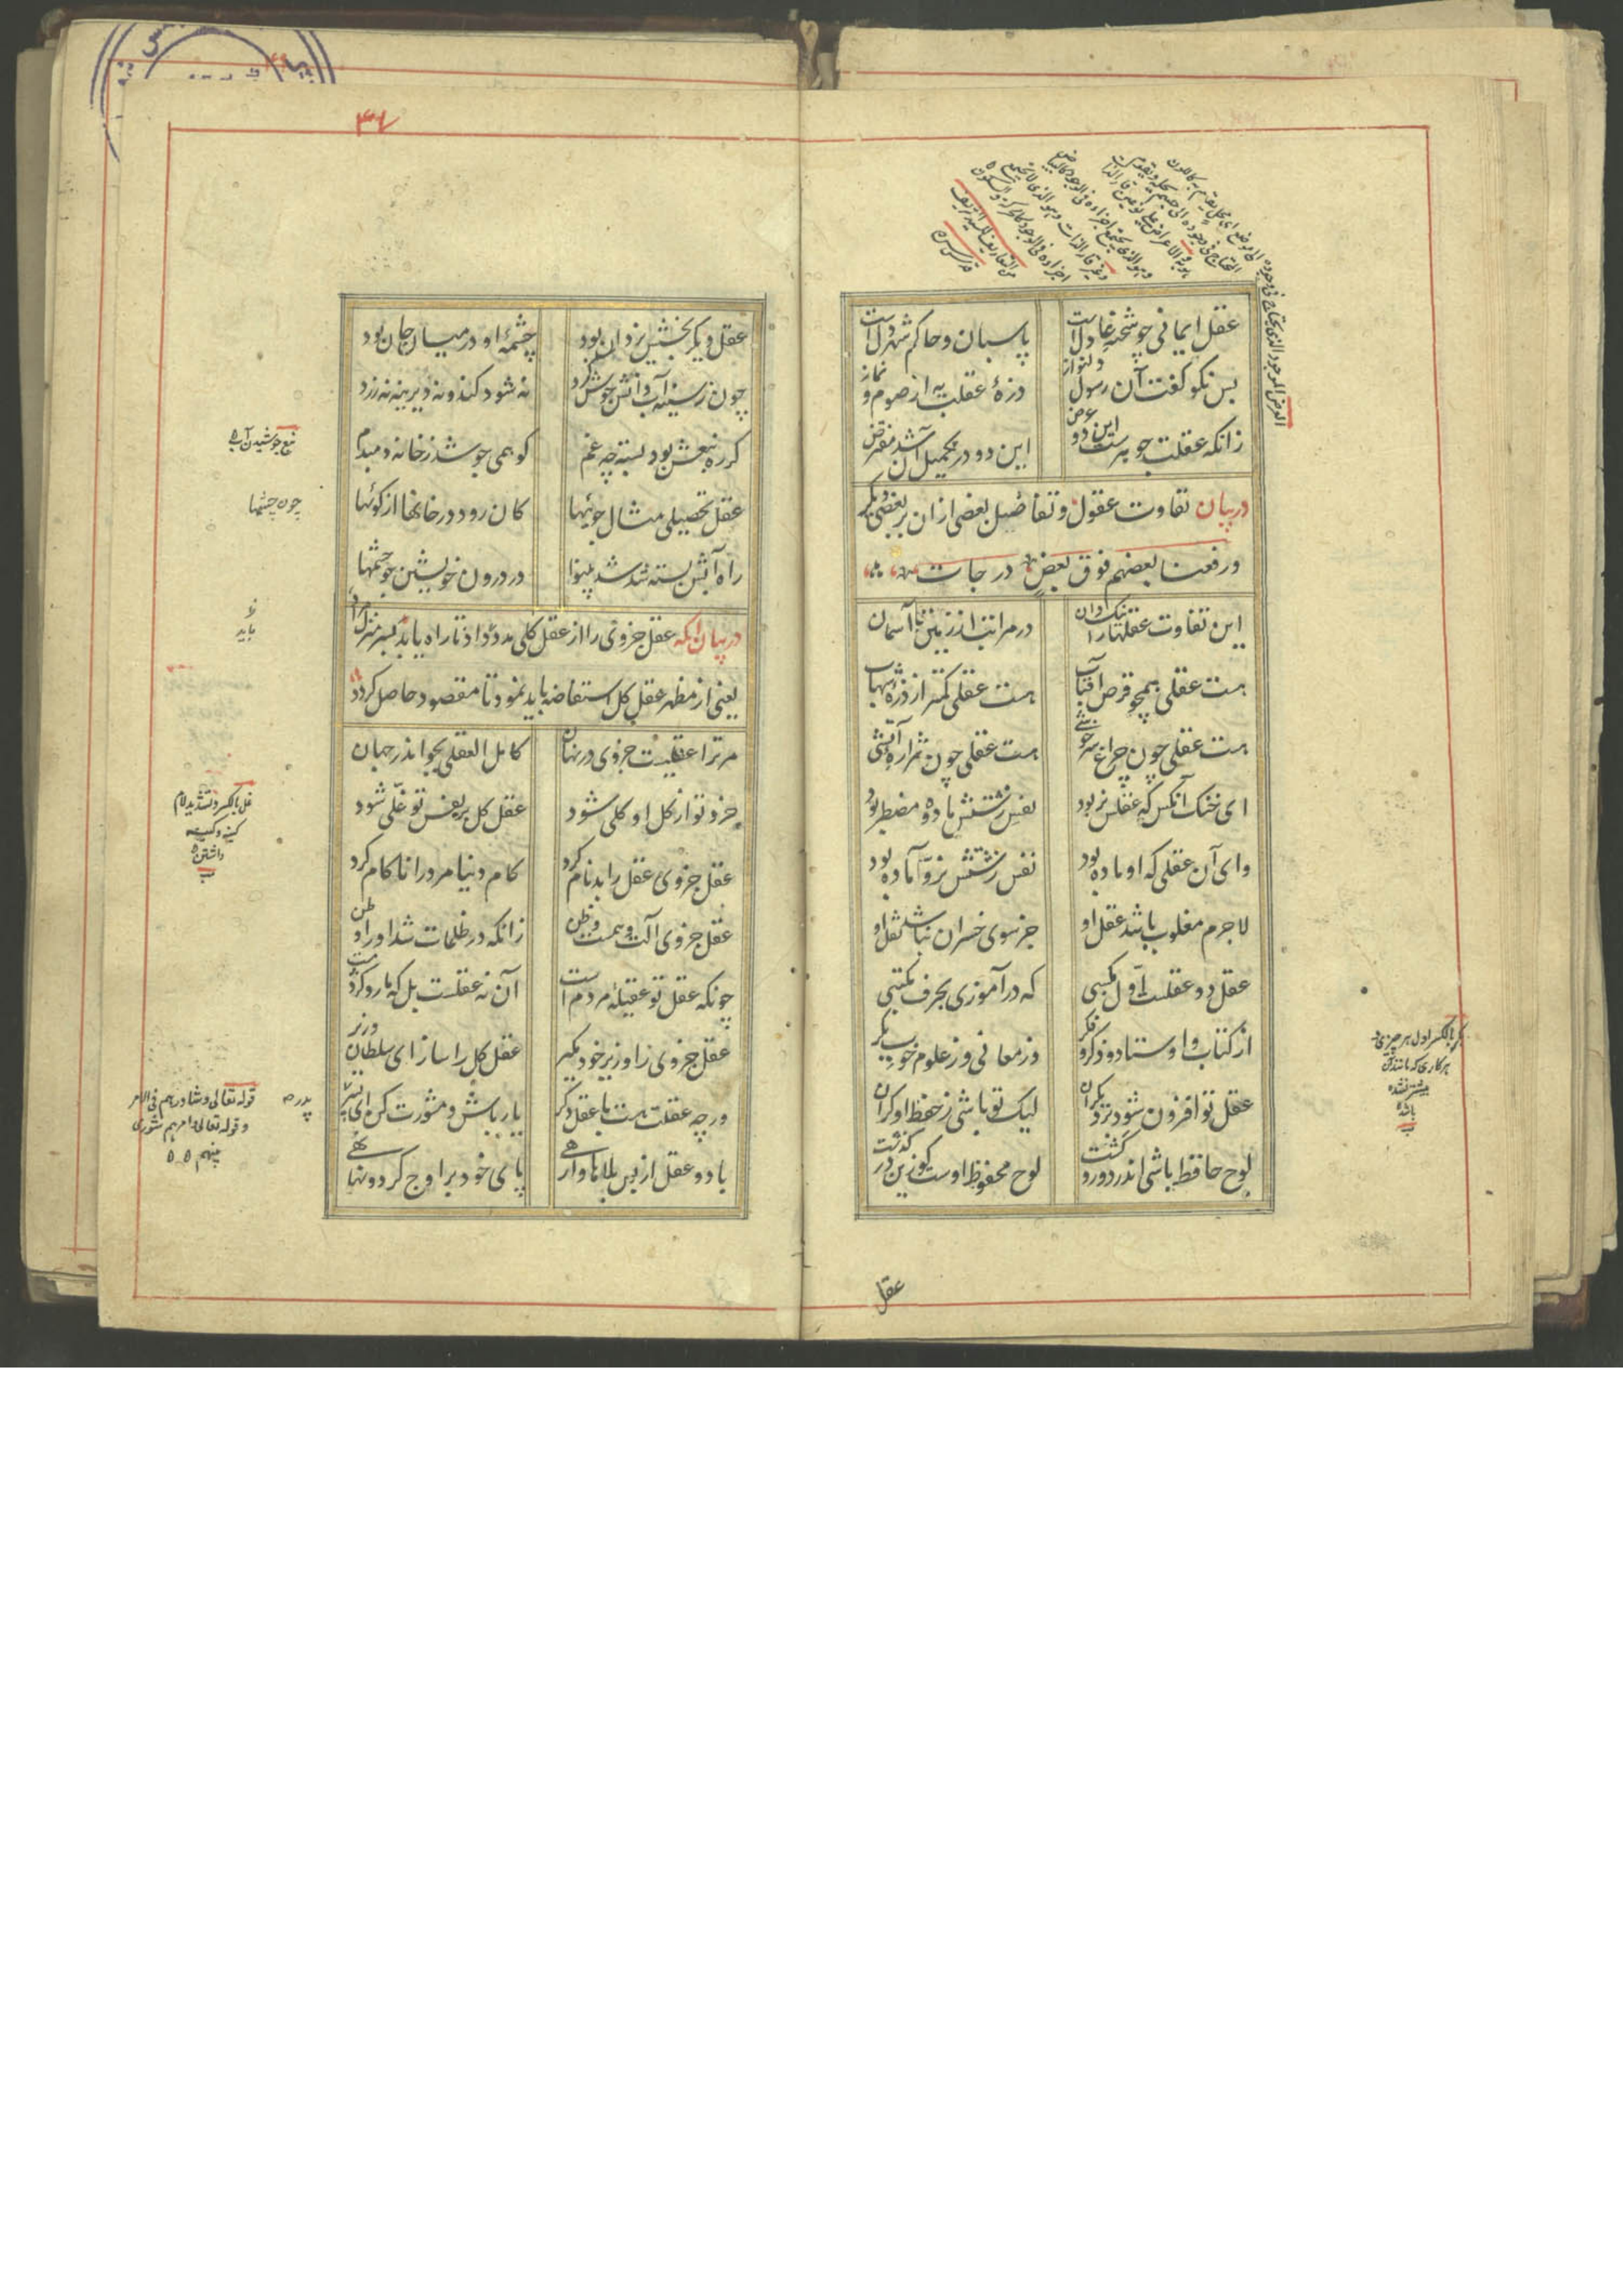 عقل ایمانی چو شحنه عادل است    پاسبان و حاکم شهر دل است
بس نکو گفت آن رسول دلنواز    ذرهٔ عقلت به از صوم و نماز
زانکه عقلت جوهرست این دو عرض    این دو در تکمیل آن شد مفترض
در بیان تفاوت عقول و تفاضیل بعضی از ان بر بعضی دیگر
ورفعنا بعضهم فوق بعض درجات
این تفاوت عقلها را نیک دان    در مراتب از زمین تا آسمان
هست عقلی همچو قرص آفتاب    هست عقلی کمتر از ذره شهاب
هست عقلی چون چراغ سرخوشی    هست عقلی چون شراره آتشی
ای خنک آنکس که عقلش نر بود    نفس زشتش ماده و مضطر بود
وای آن عقلی که او ماده بود    نفس زشتش نر و آماده بود
لاجرم مغلوب باشد عقل او    جز سوی خسران نباشد نقل او
عقل دو عقلست اول مکسبی    که در آموزی بحرف مکتبی
از کتاب و اوستاد و ذکر و فکر    وز معانی وز علوم خوب بکر
عقل تو افزون شود بر دیگران    لیک تو باشی ز حفظ او گران
لوح حافظ باشی اندر دور و گشت    لوح محفوظ اوست کو زین در گذشت
عقل
۳۷
عقل دیگر بخشش یزدان بود    چشمهٔ او در میان جان بود
چون ز سینه آب دانش جوش کرد    نه شود کنده و نه دیرینه نه زرد
گر ره نبعش بود بسته چه غم    کو همی جوشد ز خانه دمبدم
عقل تحصیلی مثال جویها    کان رود در خانها از کویها
راه آبش بسته شد شد بینوا    در درون خویشتن جو چشمها
در بیان انکه عقل جزوی را از عقل کلی مدد داد تا راه یابد بسر منزل مراد
یعنی از مظهر عقل کل استفاضه باید نمود تا مقصود حاصل گردد
مر ترا عقلیست جزوی در نهان    کامل العقلی بجو اندر جهان
جزو تو از کل او کلی شود    عقل کل بر نفس تو غلی شود
عقل جزوی عقل را بدنام کرد    کام دنیا مرد را ناکام کرد
عقل جزوی آلت وهمست و ظن    زانکه در ظلمات شد او را وطن
چونکه عقل تو عقیلهٔ مردم است    آن نه عقلست بل که مار و کژدمست
عقل جزوی را وزیر خود مگیر    عقل کل را ساز ای سلطان وزیر
ورچه عقلت هست با عقل دگر    یار باش و مشورت کن ای پسر
با دو عقل از بس بلاها وارهی    پای خود بر اوج گردونها نهی
نبع جوشیدن آب
چون چشمها
باید
غل بالکسر و تشدید لام
کینه و کینه
داشتن
پدر
قوله تعالی و شاورهم فی الامر
و قوله تعالی امرهم شوری
بینهم
بکر بالکسر اول هر چیزی و
هر کاری که مانند آن
پیشتر نشده
باشد